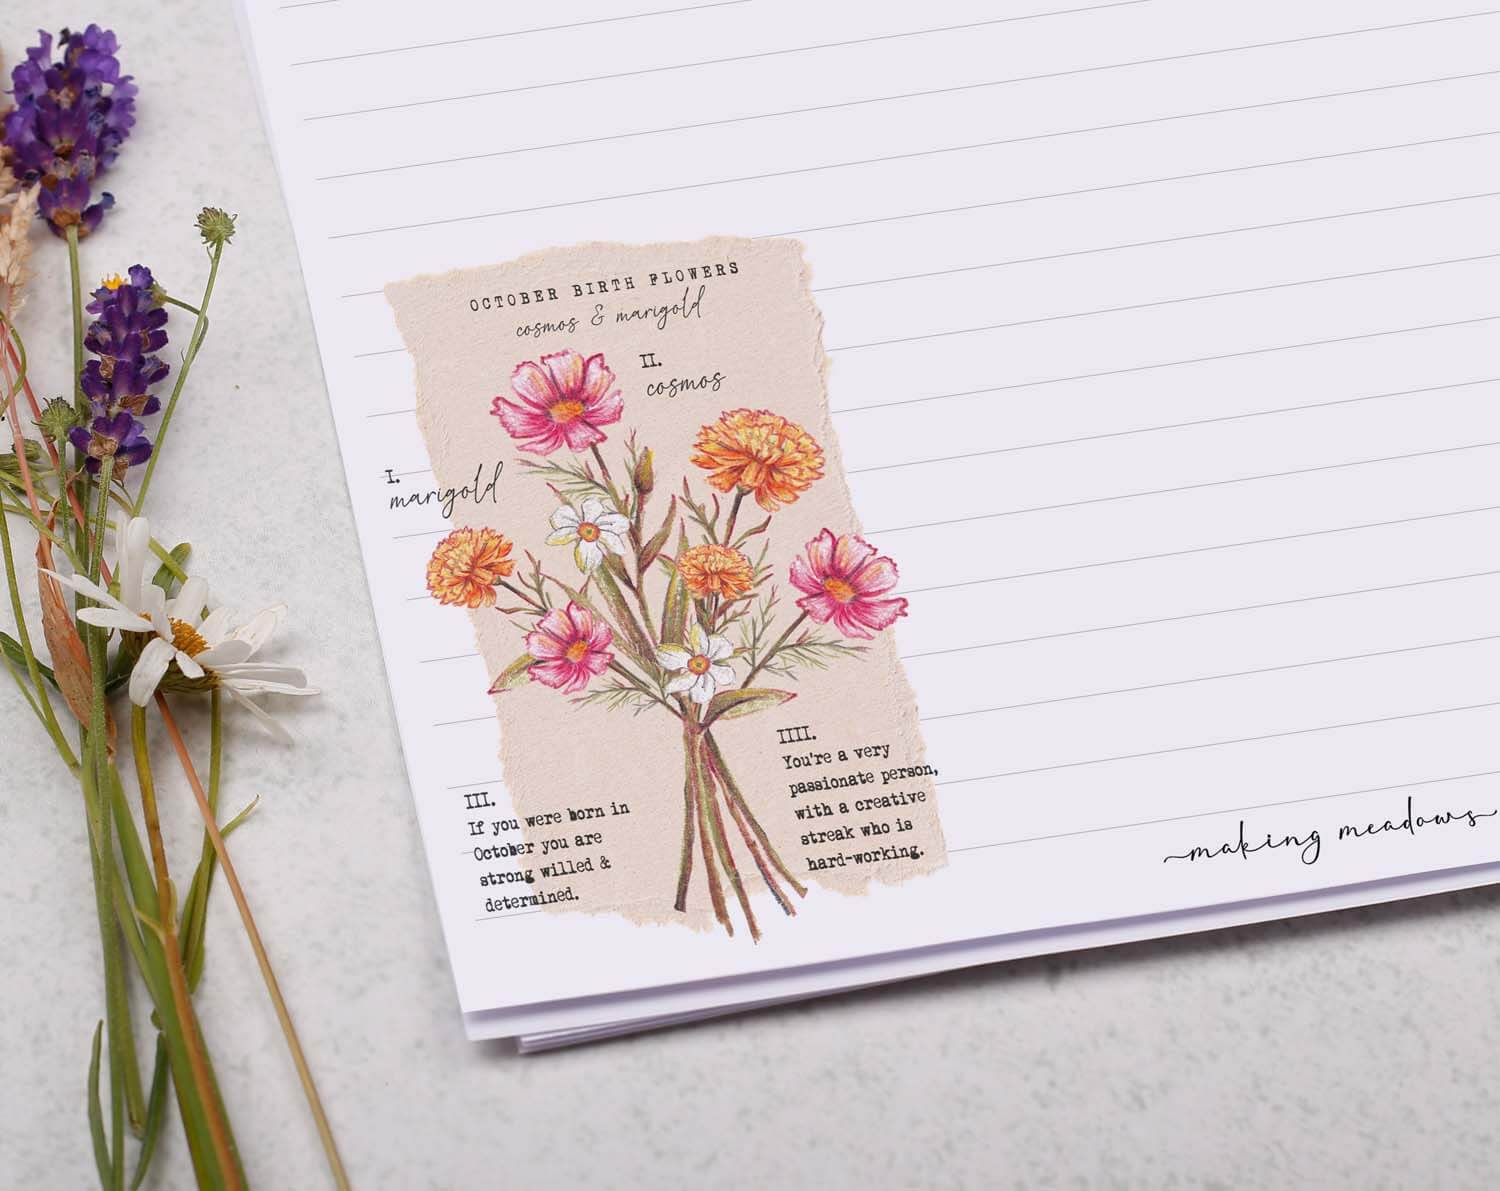 OCTOBER BIRTH FLOWERS
cosmos & marigold
II.
cosmos
I.
marigold
IIII.
You're a very
passionate person,
with a creative
streak who is
hard-working.
III.
If you were born in
October you are
strong willed &
determined.
making meadows